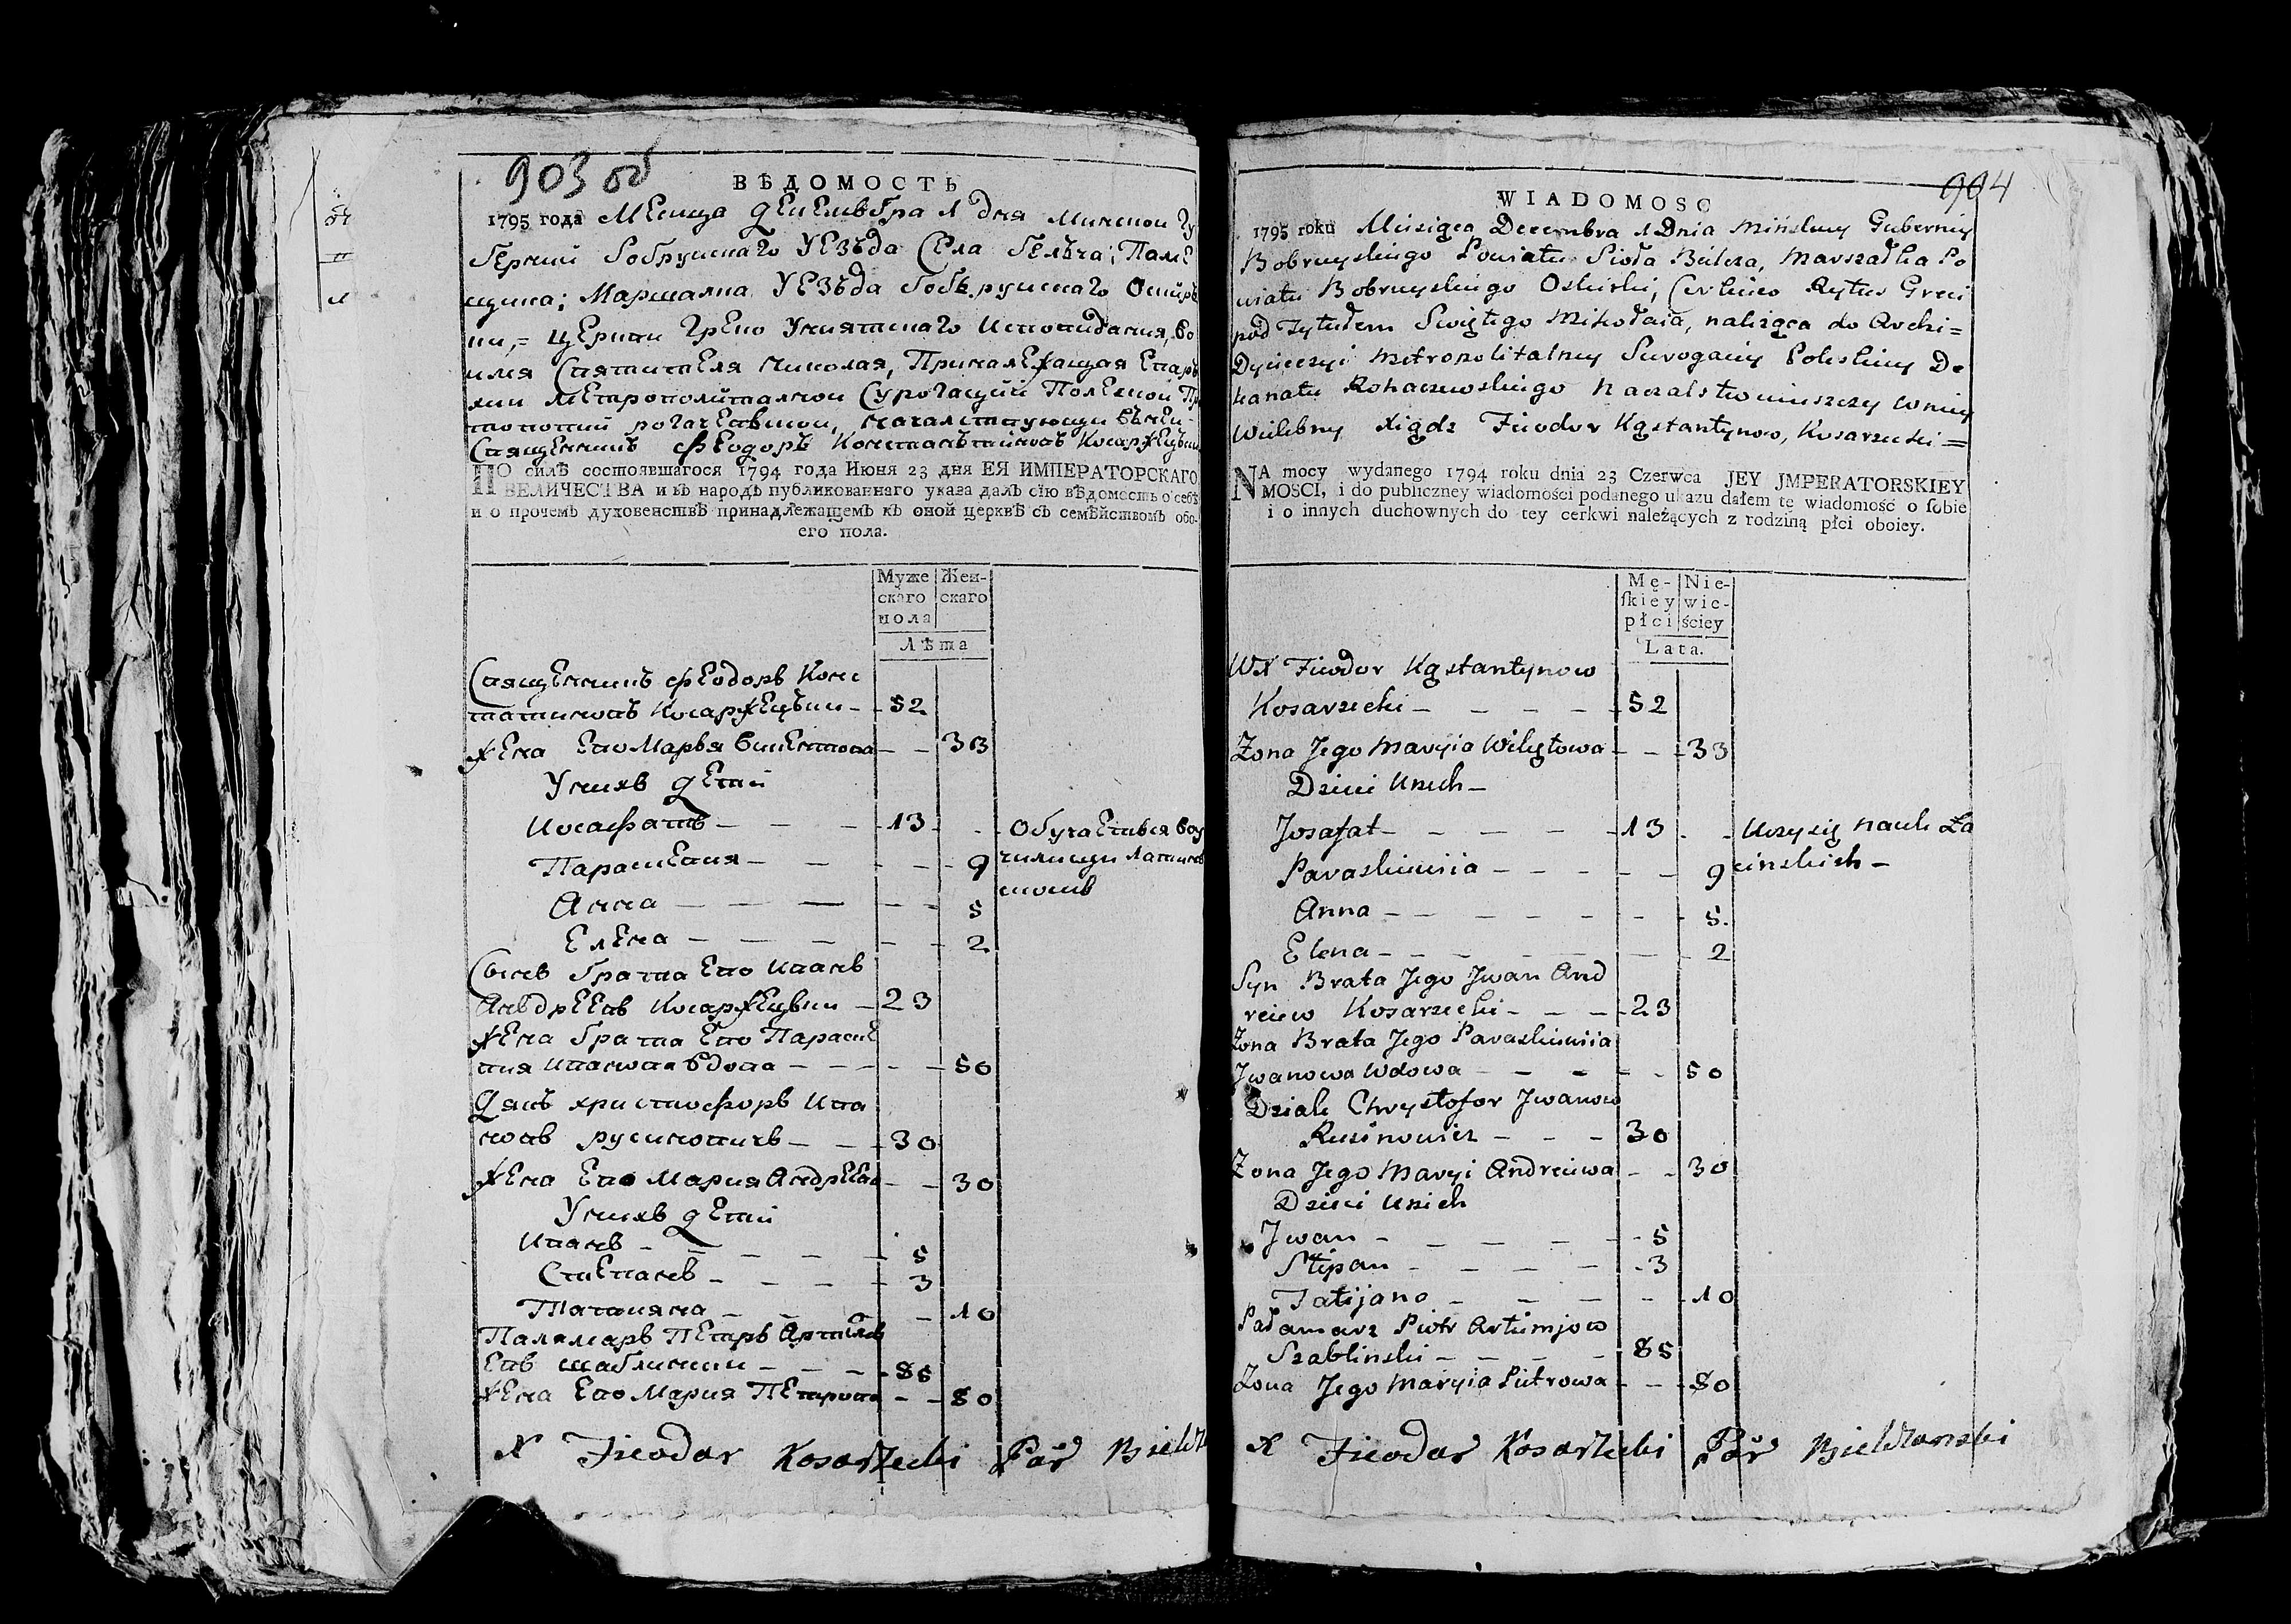 903 об
ВѢДОМОСТЬ
1795 года Месица декемвбра 1 дня минской Гу
берний бобруйскаго уезѣда села белѣча; Помѣ
щика; Маршалка уезѣда бобѣруйскаго Оскирѣ
ки,= церкви Греко униятскаго исповидания, во
имя святителя николая, Приналежащая Епарѣ
хии метрополиталной Сурогации Полеской Пр
топопий рогачевской, началствующи вѣней
священникъ феодоръ Констанѣтиновъ Косаржецѣки
ПО силѣ состоявшагося 1794 года Июня 23 дня ЕЯ ИМПЕРАТОРСКАГО
ВЕЛИЧЕСТВА и въ народъ публикованнаго указа далъ сїю вѣдомость о себѣ
и о прочемъ духовенствѣ принадлежащемъ къ оной церквѣ съ семѣйствомъ обо-
его пола.
Муже Жен-
скаго скаго
пола
Лѣта
Священникъ феодоръ Конс
татиновъ Косаржецѣки - 52
жена Его Марья викентова - - 33
У нихъ дети
Иосафатъ - - - 13 - - Обучаеться воу
Параскевия - - - - 9 чилищи латинѣ
скомъ
Анна - - - - - 5
Елена - - - - - 2
Сынъ брата Его Иванъ
Аньдреевъ Косаржецьки - 23
жена брата Его Параске
вия Иванова вдова - - - - 50
Дякъ христофоръ Ива
новъ русиновичъ - - - 30
жена Его Мария Андреева - - 30
У нихъ дети
Иванъ - - - - - 5
Степанъ - - - - 3
Татияна - - - - 10
Паламаръ Петръ Артемь
евъ шаблински - - - 85
жена Его Мария Петрова - - 80
X Fieodor Kosarzecki Par Bielcz
904
WIADOMOSC
1795 roku Miesiąca Decembra 1 Dnia Minskiey Gubernij
Bobruyskiego Powiatu Sioła Bielcza, Marszałka Po
wiatu Bobruyskiego Oskirki, Cerkiew Rytus Greci
pod Tytułem Swiętego Mikołaia, należąca do Archi=
Dyiecezyi Metropolitalney Surogacij Poleskiey De
kanatu Rohaczewskiego Naczalstwuiuszczy wniey
Wielebny Xiądz Fieodor Kąstantynow, Kosarzecki =
NA mocy wydanego 1794 roku dnia 23 Czerwca JEY JMPERATORSKIEY
MOSCI, i do publiczney wiadomości podanego ukazu dałem tę wiadomość o ſobie
i o innych duchownych do tey cerkwi należących z rodziną płci oboiey.
Mę- Nie-
ſkiey wie-
płci ściey
Lata.
WX Fieodor Kąstantynow
Kosarzecki - - - - - 52
Zona Jego Maryia Wikętowa - - - 33
Dzieci Unich -
Josafat - - - - - 13 - - Uczy się Nauk Ła
Paraskiewiia - - - - - 9 cinskich -
Anna - - - - - - - 5.
Elena - - - - - - - 2
Syn Brata Jego Jwan And
reiew Kosarzecki - - - - 23
Zona Brata Jego Paraskiewiia
Jwanowa Wdowa - - - - - 50
Dziak Chrystofor Jwanow
Rusinowicz - - - 30
Zona Jego Maryi Andreiewa - - 30
Dzieci Unich
Jwan - - - - - - 5
Stepan - - - - - 3
Tatijana - - - - - 10
Pałamarz Piotr Artiemjow
Szablinski - - - - 85
Zona Jego Maryia Pietrowa - - - 80
X Fieodor Kosarzecki Par Bielczanski